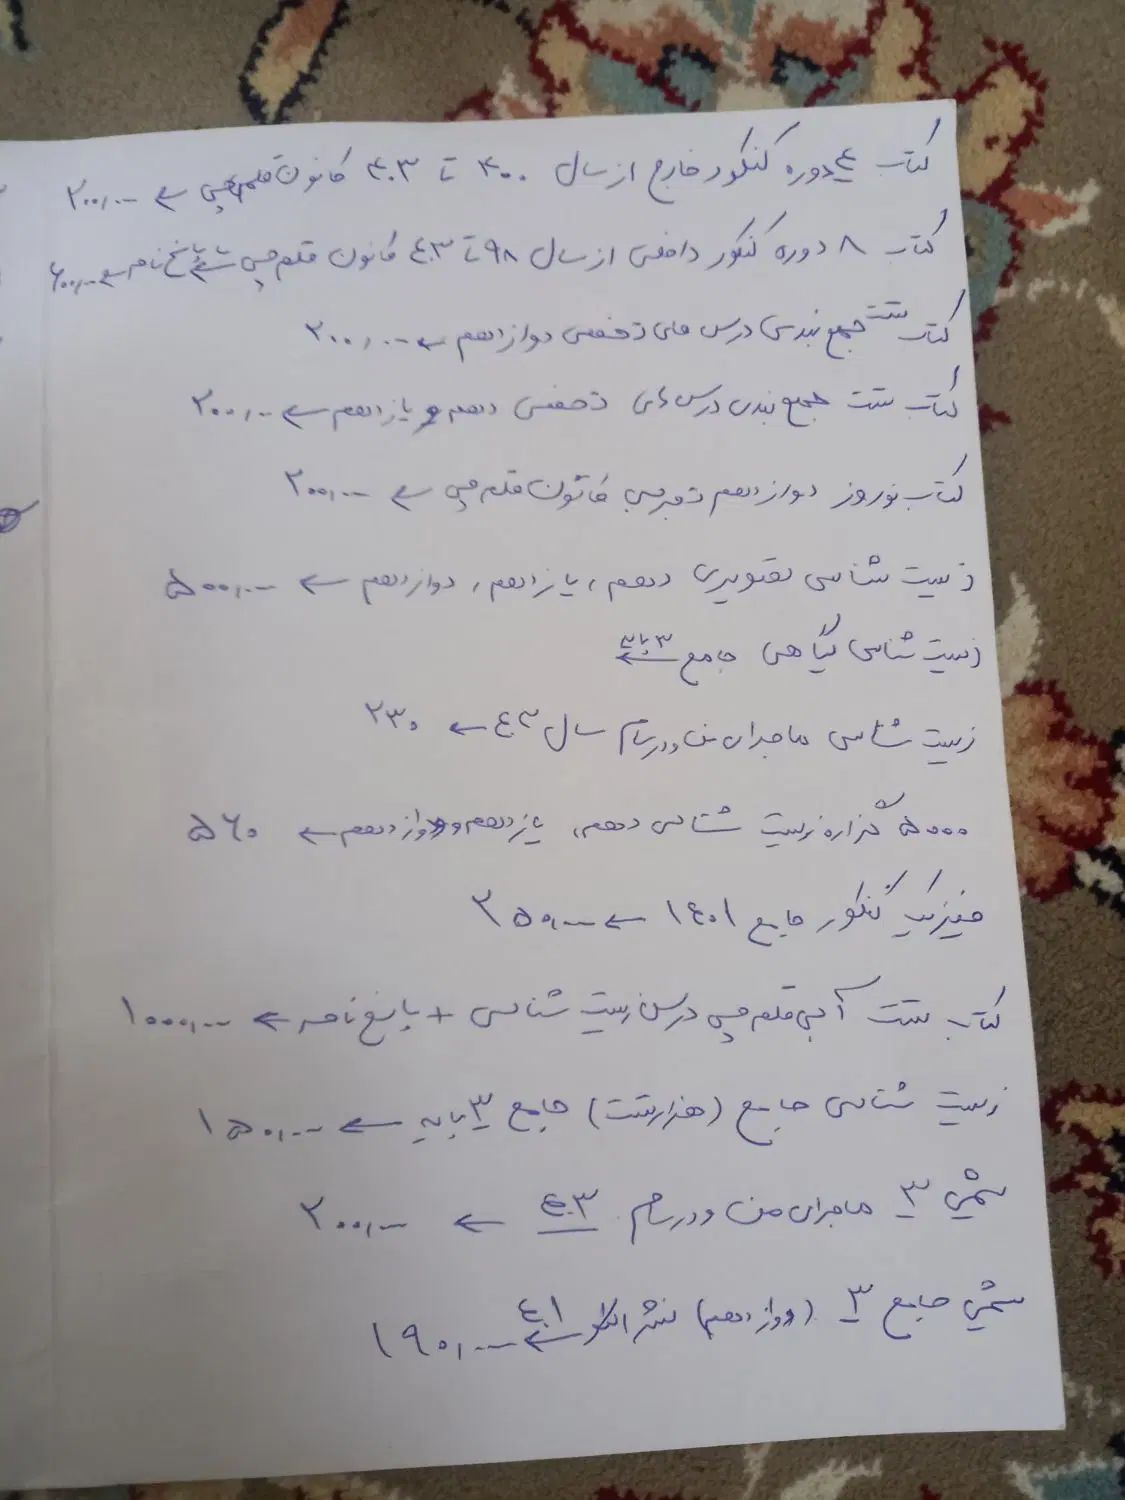 کتاب ۴ دوره کنکور خارج از سال ۴۰۰ تا ۴۰۳ کانون قلم چی ← ۲۰۰,۰۰۰
کتاب ۸ دوره کنکور داخلی از سال ۹۸ تا ۴۰۳ کانون قلم چی با پاسخ نامه ← ۶۰۰,۰۰۰
کتاب تست جمع بندی درس های تخصصی دوازدهم ← ۲۰۰,۰۰۰
کتاب تست جمع بندی درس های تخصصی دهم و یازدهم ← ۲۰۰,۰۰۰
کتاب نوروز دوازدهم تجربی کانون قلم چی ← ۲۰۰,۰۰۰
زیست شناسی تصویری دهم، یازدهم، دوازدهم ← ۵۰۰,۰۰۰
زیست شناسی گیاهی جامع ۳ پایه ←
زیست شناسی ماجرای من و درسام سال ۴۰۳ ← ۲۳۰
۵۰۰۰ گزاره زیست شناسی دهم، یازدهم و دوازدهم ← ۵۶۰
فیزیک کنکور جامع ۱۴۰۱ ← ۲۵۰,۰۰۰
کتاب تست آبی قلم چی درس زیست شناسی + پاسخ نامه ← ۱۰۰۰,۰۰۰
زیست شناسی جامع (هزارتست) جامع ۳ پایه ← ۱۵۰,۰۰۰
شیمی ۳ ماجرای من و درسام ۴۰۳ ← ۲۰۰,۰۰۰
شیمی جامع ۳ (دوازدهم) نشر الگو ۴۰۱ ← ۱۹۰,۰۰۰